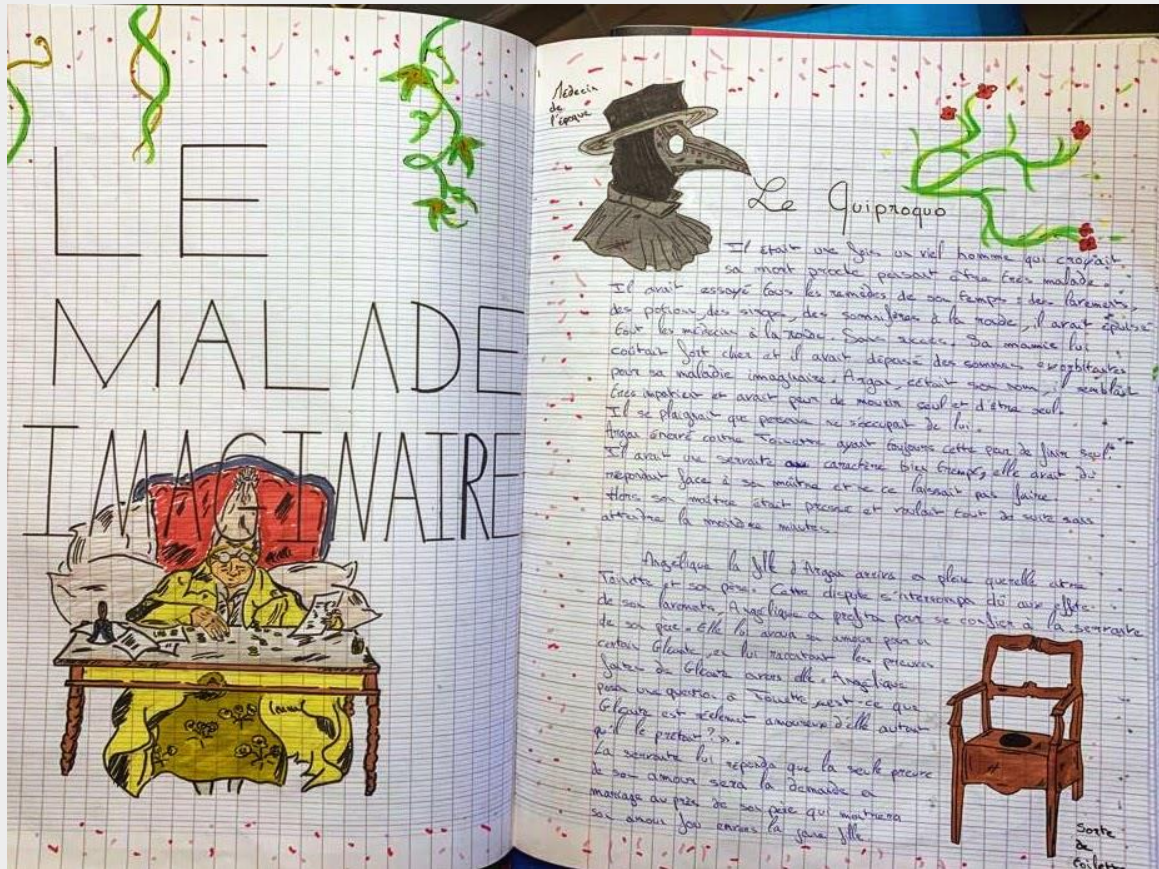 LE
MALADE
IMAGINAIRE
Médecin
de
l'époque
Le Quiproquo
Il était une fois un viel homme qui croyait
sa mort proche pensait être très malade.
Il avait essayé tous les remèdes de son temps : des lavements,
des potions, des sirops, des somnifères à la rode, il avait épuisé
tout les médecins à la ronde. Sans succès. Sa manie lui
coûtait fort cher et il avait dépensé des sommes exorbitantes
pour sa maladie imaginaire. Argan, c'était son nom, il semblait
très impatient et avait peur de mourir seul et d'être seul.
Il se plaignait que personne ne s'occupait de lui.
Argan énervé contre Toinette ayant toujours cette peur de finir seul.
Il avait une servante au caractère bien trempé, elle avait du
répondant face à son maître et ne ce laissait pas faire.
Alors son maître était pressé et voulait tout de suite sans
attendre la moindre minutes
Angélique la fille d'Argan arriva a pleine querelle entre
Toinette et son père. Cette dispute s'interrompa dû aux effets
de son lavements, Angélique a profita pour se confier à la servante
de son père. Elle lui avoua son amour pour un
certain Cléante, et lui racontant les preuves
faites de Cléante envers elle. Angélique
posa une question à Toinette « est-ce que
Cléante est réelement amoureux d'elle autant
qu'il le prétent ? ».
La servante lui réponda que la seule preuve
de son amour sera la demande a
mariage au près de son père qui montrera
son amour fou envers la jeune fille
Sorte
de
toilette